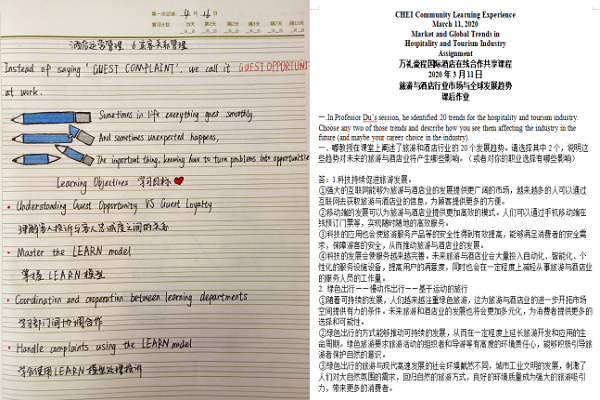 第一次记录: 4 月 16 日
复习计划: 当天 第2天 第4天 第7天 第15天
酒店运营管理 6 宾客关系管理
Instead of saying 'GUEST COMPLAINT', we call it GUEST OPPORTUNI
at work.
Sometimes in life everything goes smoothly.
And sometimes unexpected happens,
The important thing, knowing how to turn problems into opportunities
Learning Objectives 学习目标
• Understanding Guest Opportunity VS Guest Loyalty
理解客人投诉与客人忠诚度之间的关系
• Master the LEARN model
掌握 LEARN 模型
• Coordination and cooperation between learning departments
学习部门间协调合作
• Handle complaints using the LEARN model
学会使用 LEARN 模型处理投诉
CHEI Community Learning Experience
March 11, 2020
Market and Global Trends in
Hospitality and Tourism Industry
Assignment
万礼豪程国际酒店在线合作共享课程
2020 年 3 月 11 日
旅游与酒店行业市场与全球发展趋势
课后作业
一.In Professor Du's session, he identified 20 trends for the hospitality and tourism industry.
Choose any two of those trends and describe how you see them affecting the industry in the
future (and maybe your career choice in the industry).
一、嘟教授在课堂上阐述了旅游和酒店行业的 20 个发展趋势。请选择其中 2 个，说明这
些趋势对未来的旅游与酒店业将产生哪些影响。（或者对你的职业选择有哪些影响）
答：1.科技持续促进旅游发展。
①强大的互联网能够为旅游与酒店业的发展提供更广阔的市场，越来越多的人可以通过
互联网去获取旅游与酒店业的信息，为顾客提供更多的方便。
②移动端的发展可以为旅游与酒店业提供更加高效的模式。人们可以通过手机移动端在
线预订门票等，实现随时随地的高效服务。
③科技的应用也会使旅游服务产品等的安全性得到有效提高，能够满足消费者的安全需
求，保障游客的安全，从而推动旅游与酒店业的发展。
④科技的发展会使服务越来越完善。未来旅游与酒店业会大量投入自动化、智能化、个
性化的服务设施设备，提高用户的满意度，同时也会在一定程度上减轻从事旅游与酒店业
的服务人员的工作量。
2. 绿色出行——慢动作出行——基于运动的旅行
①随着可持续的发展，人们越来越注重绿色旅游，这为旅游与酒店业的进一步开拓市场
空间提供有力的条件。未来旅游和酒店业的发展也将会更加多元化，为消费者提供更多的
选择和可能性。
②绿色出行的方式能够推动可持续的发展，从而在一定程度上延长旅游开发和应用的生
命周期。绿色旅游要求旅游活动的组织者和导游等有高度的环境责任心，能够积极引导旅
游者保护自然的意识。
③绿色出行的旅游与现代高速发展的社会环境截然不同，城市工业文明的发展，刺激了
人们对大自然氛围的需求，回归自然的旅游方式，良好的环境质量成为强大的旅游吸引
力，带来更多的消费者。